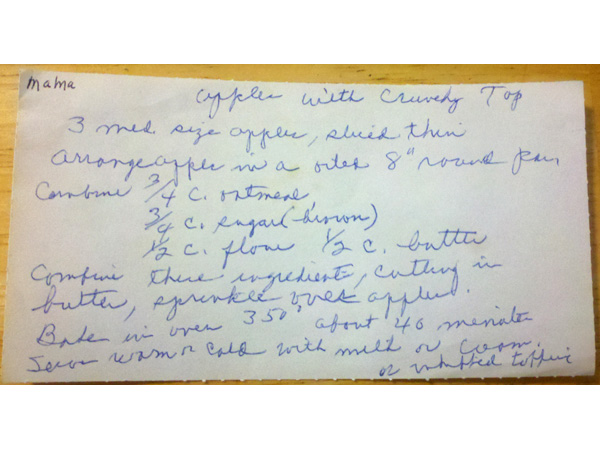 Mama
Apples with Crunchy Top
3 med. size apples, sliced thin
Arrange apples in a oiled 8" round pan,
Combine 3/4 c. oatmeal,
3/4 c. sugar (brown)
1/2 c. flour 1/2 c. butter
Combine these ingredients, cutting in
butter, sprinkle over apples.
Bake in oven 350° about 40 minutes
Serve warm or cold with milk or cream.
or whipped topping